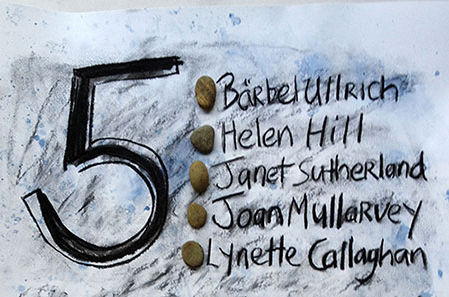 5
Bärbel Ullrich
Helen Hill
Janet Sutherland
Joan Mullarvey
Lynette Callaghan